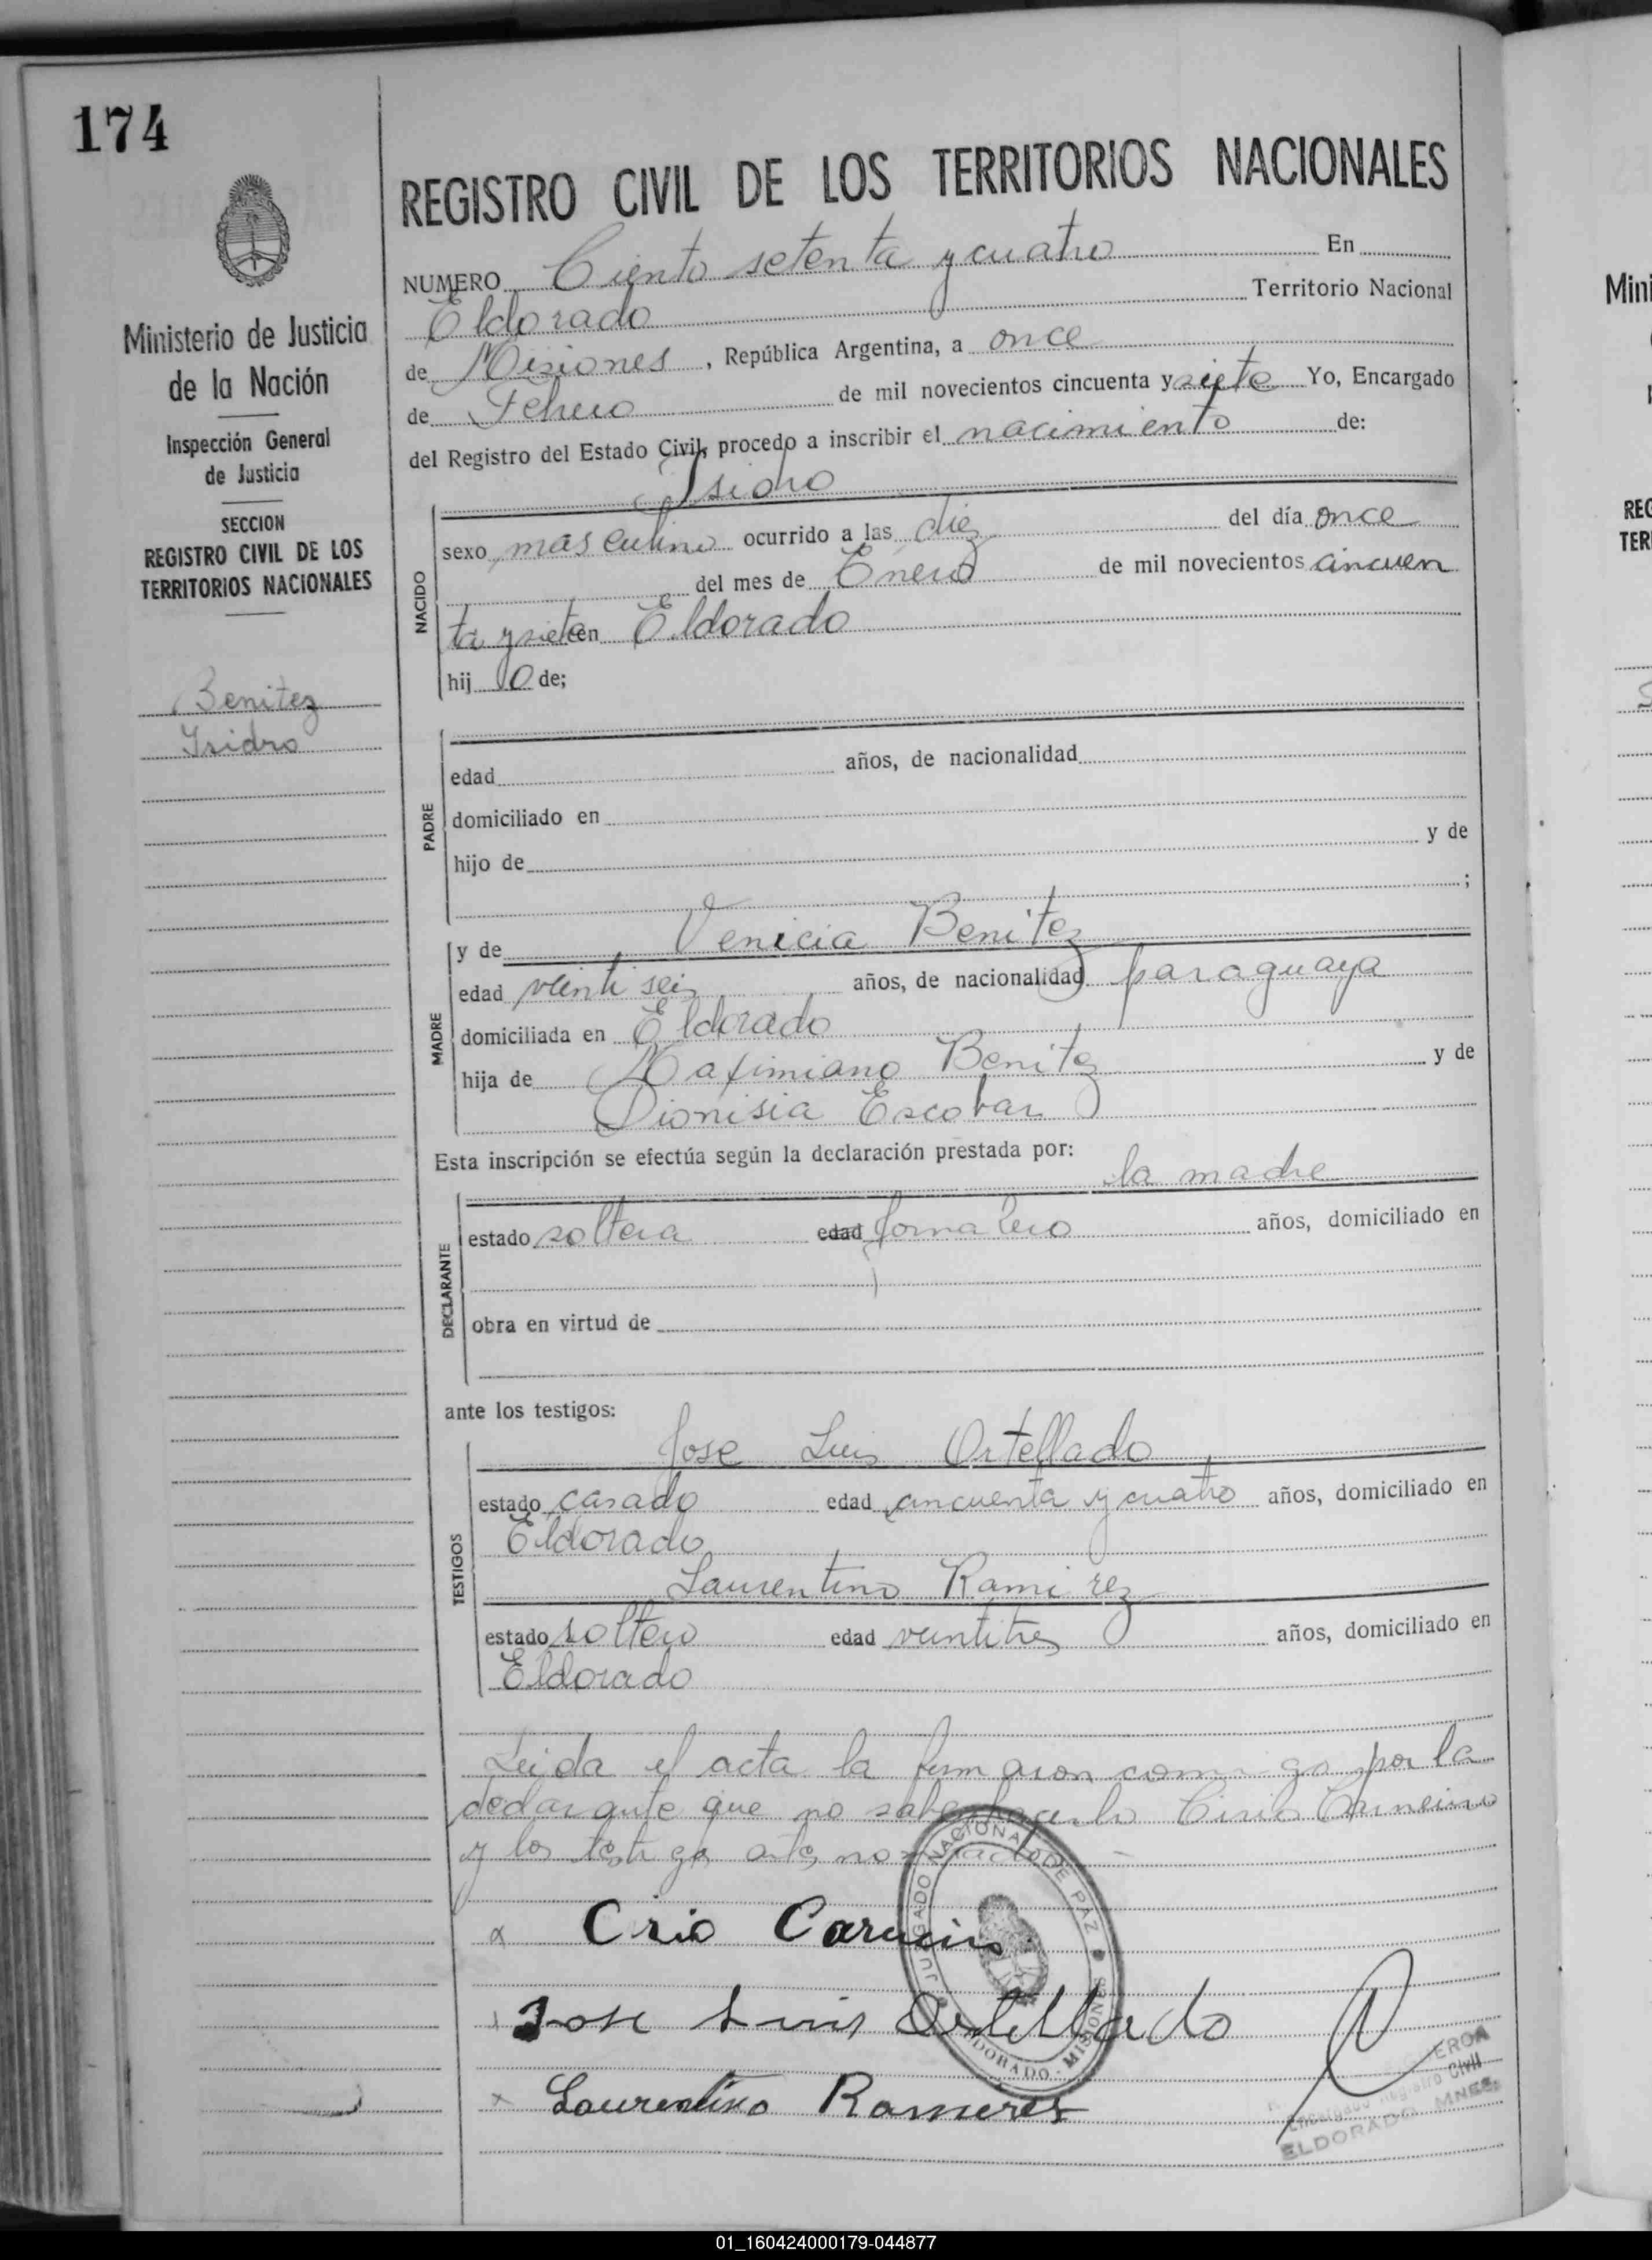 174
REGISTRO CIVIL DE LOS TERRITORIOS NACIONALES
NUMERO Ciento setenta y cuatro En
Eldorado Territorio Nacional
de Misiones, República Argentina, a once
de Febrero de mil novecientos cincuenta y siete Yo, Encargado
del Registro del Estado Civil, procedo a inscribir el nacimiento de:
Isidro
Ministerio de Justicia
de la Nación
Inspección General
de Justicia
SECCION
REGISTRO CIVIL DE LOS
TERRITORIOS NACIONALES
Benitez
Isidro
NACIDO
sexo masculino ocurrido a las diez del día once
del mes de Enero de mil novecientos cincuen
ta y siete en Eldorado
hij o de;
PADRE
edad años, de nacionalidad
domiciliado en
hijo de y de
;
MADRE
y de Venicia Benitez
edad veinti seis años, de nacionalidad paraguaya
domiciliada en Eldorado
hija de Maximiano Benitez y de
Dionisia Escobar
Esta inscripción se efectúa según la declaración prestada por:
la madre
DECLARANTE
estado soltera edad Jornalero años, domiciliado en
obra en virtud de
ante los testigos:
TESTIGOS
Jose Luis Ortellado
estado casado edad cincuenta y cuatro años, domiciliado en
Eldorado
Laurentino Ramirez
estado soltero edad veintitres años, domiciliado en
Eldorado
Leida el acta la firmaron comigo por la
declarante que no sabe hacerlo Cirilo
y los testigos
JUZGADO NACIONAL DE PAZ
ELDORADO - MISIONES
Jose Luis Ortellado
Laurentino Rameres
Encargado Registro Civil
ELDORADO MNES.
Mini
REG
TER
01_160424000179-044877